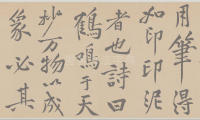 用筆得
如印印泥
者也詩曰
鶴鳴于天
妙万物以成
象必其